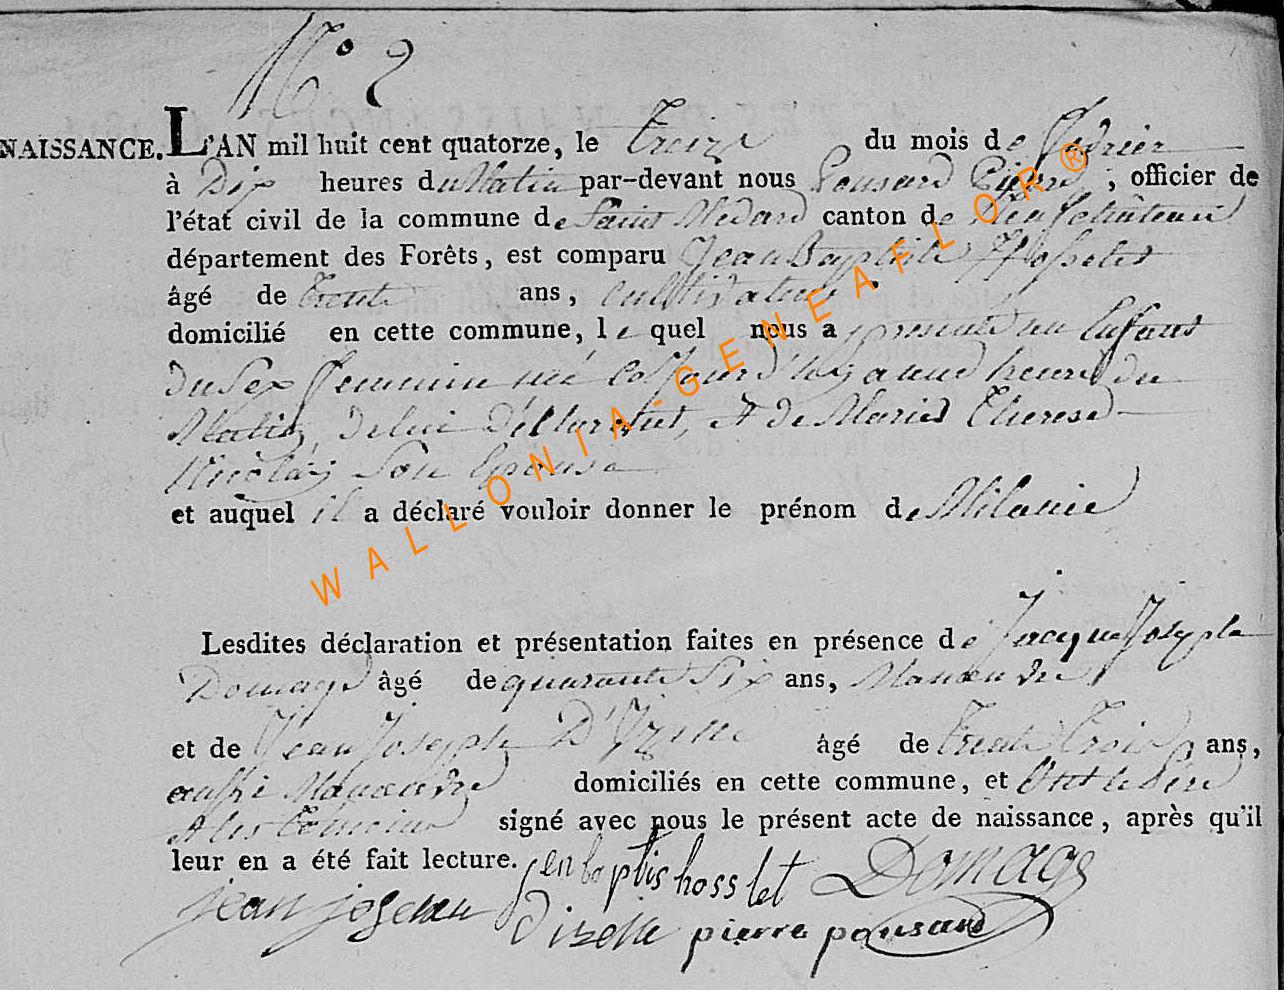 N.º 2
NAISSANCE. L'AN mil huit cent quatorze, le Treize du mois de Fevrier
à Dix heures du Matin par-devant nous Pousard Pierre, officier de
l'état civil de la commune de Saint Médard canton de Neufchâteau
département des Forêts, est comparu Jean Baptiste Hosselet
âgé de Trente ans, Cultivateur
domicilié en cette commune, le quel nous a presenté un Enfant
du Sex feminin né aujourd'huy a une heure du
Matin, de lui Déclarant, et de Marie Therese
Nicolay Son Epouse
et auquel il a déclaré vouloir donner le prénom de Milanie
Lesdites déclaration et présentation faites en présence de Jacque Joseph
Domage âgé de quarante Six ans, Manœuvre
et de Jean Joseph D'Izelle âgé de Trente Trois ans,
aussi Manœuvre domiciliés en cette commune, et Ont le Père
et les temoins signé avec nous le présent acte de naissance, après qu'il
leur en a été fait lecture. jen baptis hosslet Domage
jean joseph Dizelle pierre pousard
WALLONIA-GENEAFLOR®